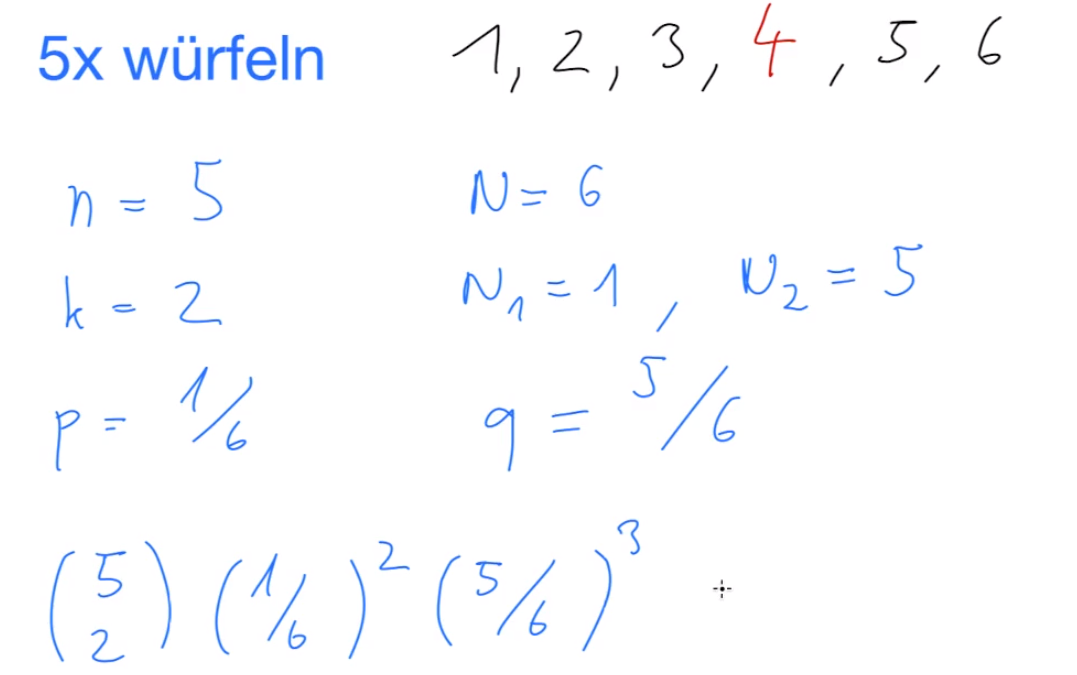 5x würfeln 1, 2, 3, 4, 5, 6
n = 5 N = 6
k = 2 N₁ = 1, N₂ = 5
p = 1/6 q = 5/6
(5 2) (1/6)² (5/6)³